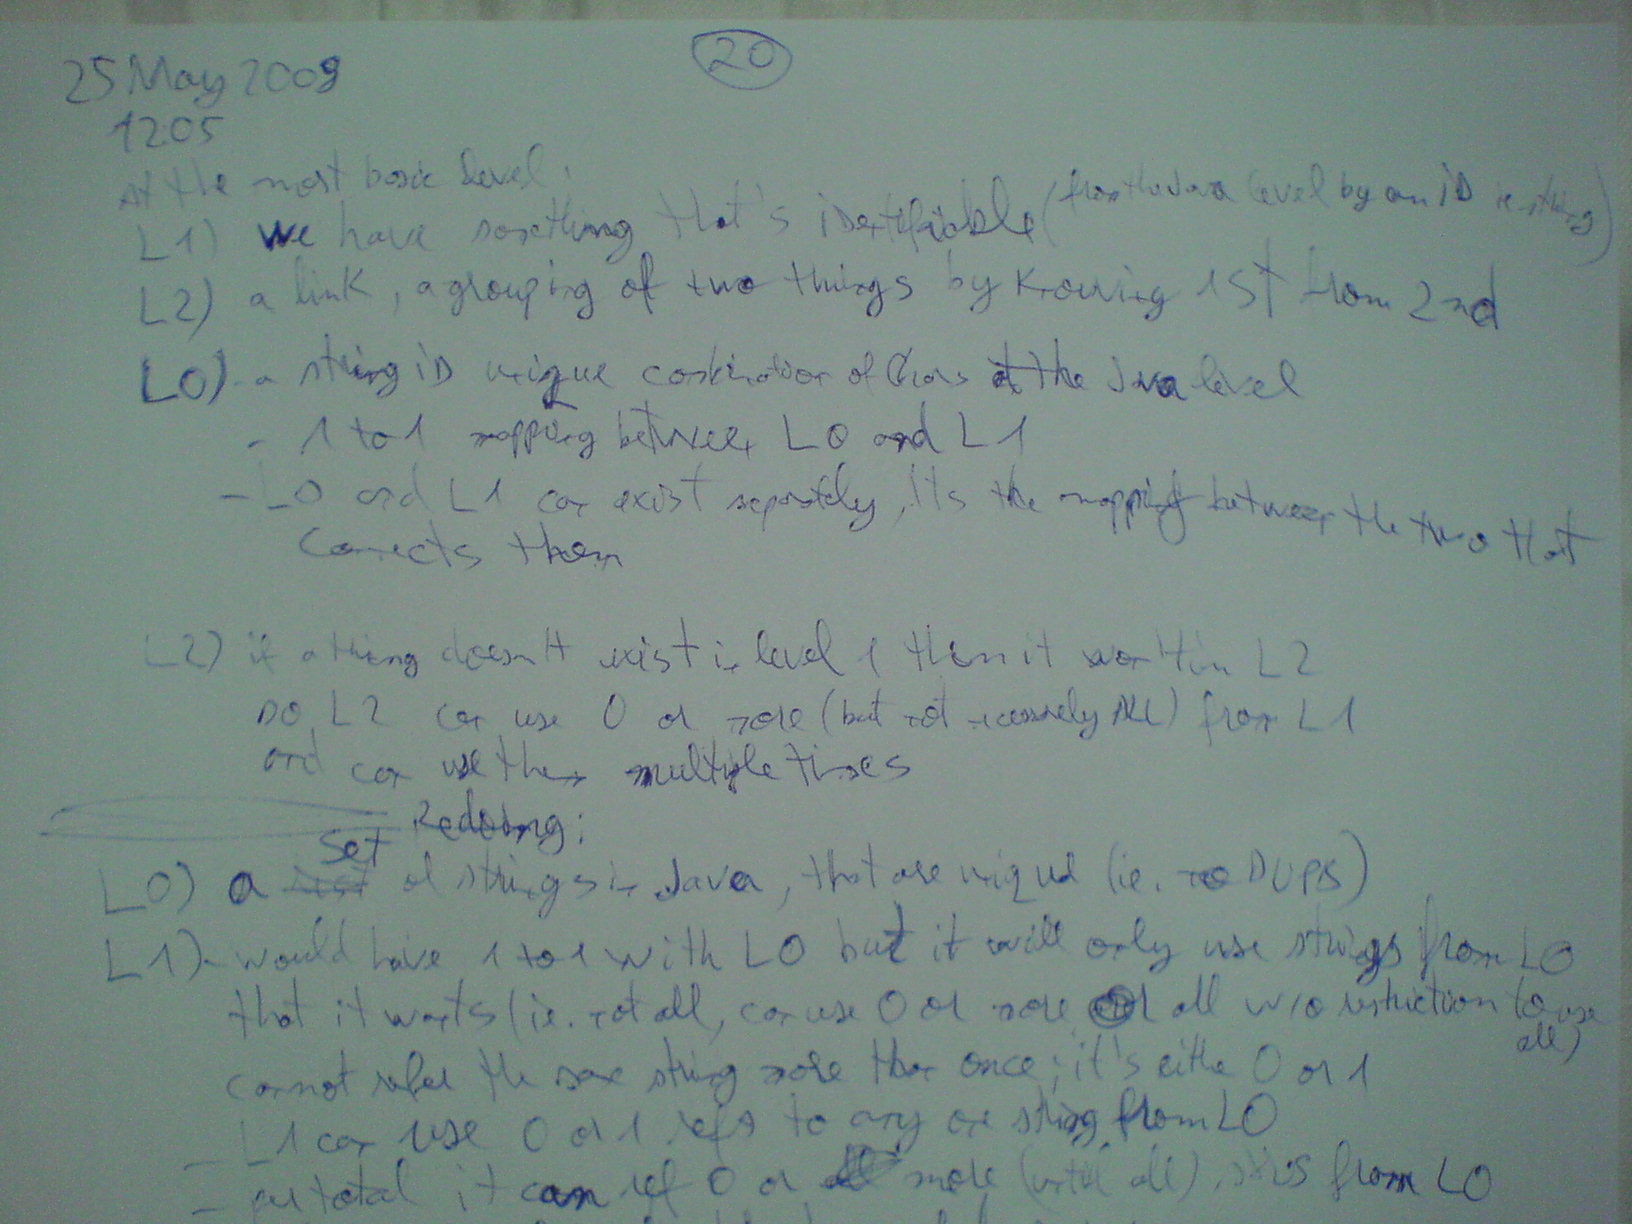 20
25 May 2009
1205
At the most basic level.
L1) we have something that's identifiable (from the Java level by an ID ie. string)
L2) a link, a grouping of two things by knowing 1st from 2nd
L0) - a string ID unique combination of chars at the Java level
- 1 to 1 mapping between L0 and L1
- L0 and L1 can exist separately, it's the mapping between the two that
connects them
L2) if a thing doesn't exist in level 1 then it won't in L2
so L2 can use 0 or more (but not necessarily ALL) from L1
and can use them multiple times
Redoing:
Set
L0) a list of strings in Java, that are unique (ie. no DUPS)
L1) - would have 1 to 1 with L0 but it will only use strings from L0
that it wants (ie. not all, can use 0 or more or all w/o restriction to use
all)
cannot refer the same string more than once; it's either 0 or 1
- L1 can use 0 or 1 refs to any one string from L0
- total it can ref 0 or more (until all), from L0